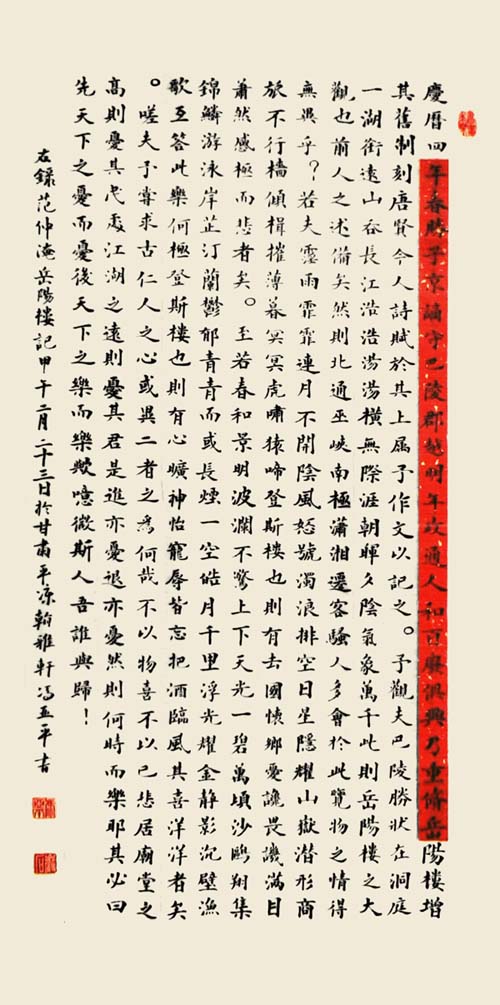 慶曆四年春滕子京謫守巴陵郡越明年政通人和百廢俱興乃重脩岳陽樓增
其舊制刻唐賢今人詩賦於其上屬予作文以記之。予觀夫巴陵勝狀在洞庭
一湖銜遠山吞長江浩浩湯湯橫無際涯朝暉夕陰氣象萬千此則岳陽樓之大
觀也前人之述備矣然則北通巫峽南極瀟湘遷客騷人多會於此覽物之情得
無異乎？若夫霪雨霏霏連月不開陰風怒號濁浪排空日星隱耀山嶽潛形商
旅不行檣傾楫摧薄暮冥冥虎嘯猿啼登斯樓也則有去國懷鄉憂讒畏譏滿目
蕭然感極而悲者矣。至若春和景明波瀾不驚上下天光一碧萬頃沙鷗翔集
錦鱗游泳岸芷汀蘭鬱郁青青而或長煙一空皓月千里浮光耀金靜影沉璧漁
歌互答此樂何極登斯樓也則有心曠神怡寵辱皆忘把酒臨風其喜洋洋者矣
。嗟夫予嘗求古仁人之心或異二者之為何哉不以物喜不以己悲居廟堂之
高則憂其民處江湖之遠則憂其君是進亦憂退亦憂然則何時而樂耶其必曰
先天下之憂而憂後天下之樂而樂歟噫微斯人吾誰與歸！
右錄范仲淹岳陽樓記甲午二月二十三日於甘肅平涼翰雅軒馮五平書